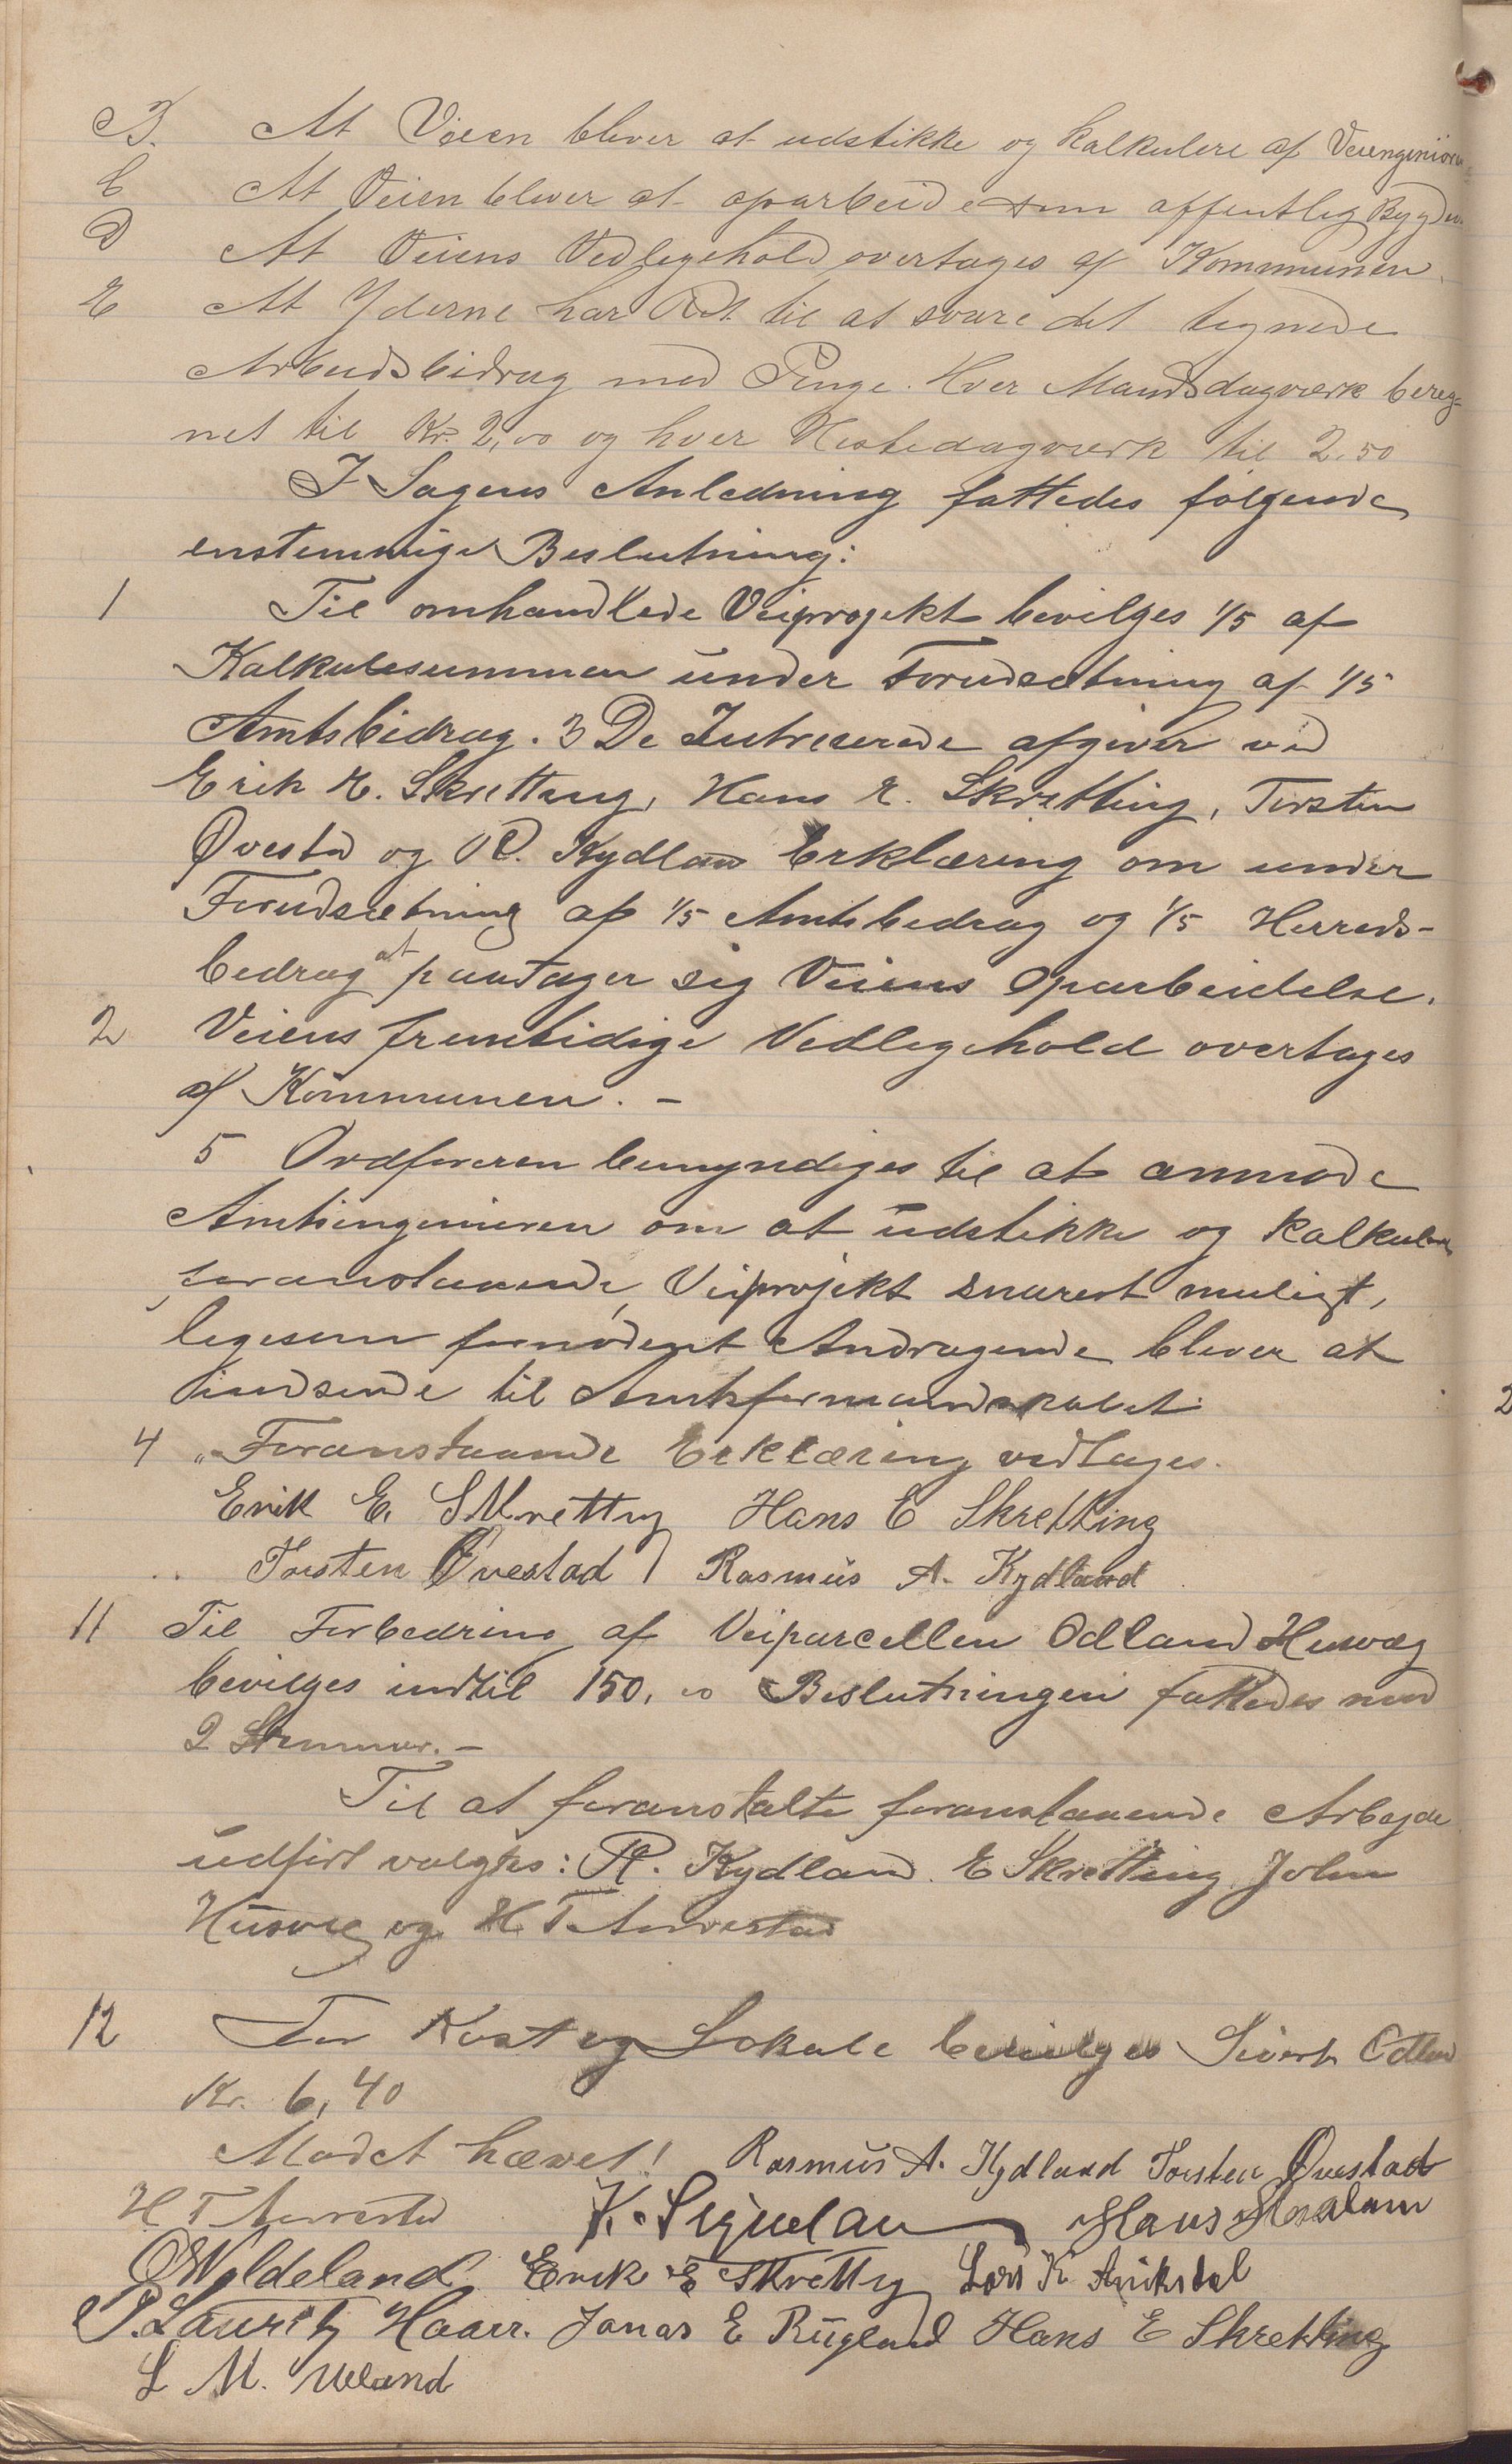 B. At Veien blever at udstikke og kalkulere af Veiengeniøren
C At Veien blever at oparbeide som offentlig Bygdev.
D At Veiens Vedligehold overtages af Kommunen.
E At Yderne har Ret til at svare det tegnede
Arbeidsbidrag med Penge. Hver Mandsdagværk bereg-
net til Kr. 2,00 og hver Hestedagværk til 2,50
I Sagens Anledning fattedes følgende
enstemmige Beslutning:
1 Til omhandlede Veiprojekt bevilges 1/5 af
Kalkulesummen under Forudsætning af 1/5
Amtsbidrag. 3 De Intreserede afgiver ved
Erik E. Skretting, Hans E. Skretting, Torsten
Øvestad og R. Kydland Erklæring om under
Forudsætning af 1/5 Amtsbidrag og 1/5 Herreds-
bedrag at paatager sig Veiens Oparbeidelse.
2 Veiens fremtidige Vedligehold overtages
af Kommunen. -
5 Ordføreren bemyndiges til at anmode
Amtsingeniøren om at udstikke og kalkulere
foranstaaende Veiprojekt snarest muligt,
ligesom fornødent Andragende blever at
indsende til Amtsformandskabet.
4 " Foranstaaende Erklæring vedtages.
Erik E. Skretting Hans E Skretting
Torsten Øvestad Rasmus A. Kydland
11 Til Forbedring af Veiparcellen Odland Husvæg
bevilges indtil 150,00 Beslutningen fattedes med
2 Stemmer. -
Til at foranstalte foranstaaende Arbejde
udført valgtes: R. Kydland. E Skretting John
Husvæg og H T Aarrestad
12 For Kost og Lokale bevilges Sivert Odland
Kr. 6,40
Mødet hævet! Rasmus A. Kydland Torsten Øvestad
H T Aarrestad K. Hans
Erik E Skretting Lars K
P. Lauritz Haarr. Jonas E Rugland Hans E Skretting
L M. Ueland